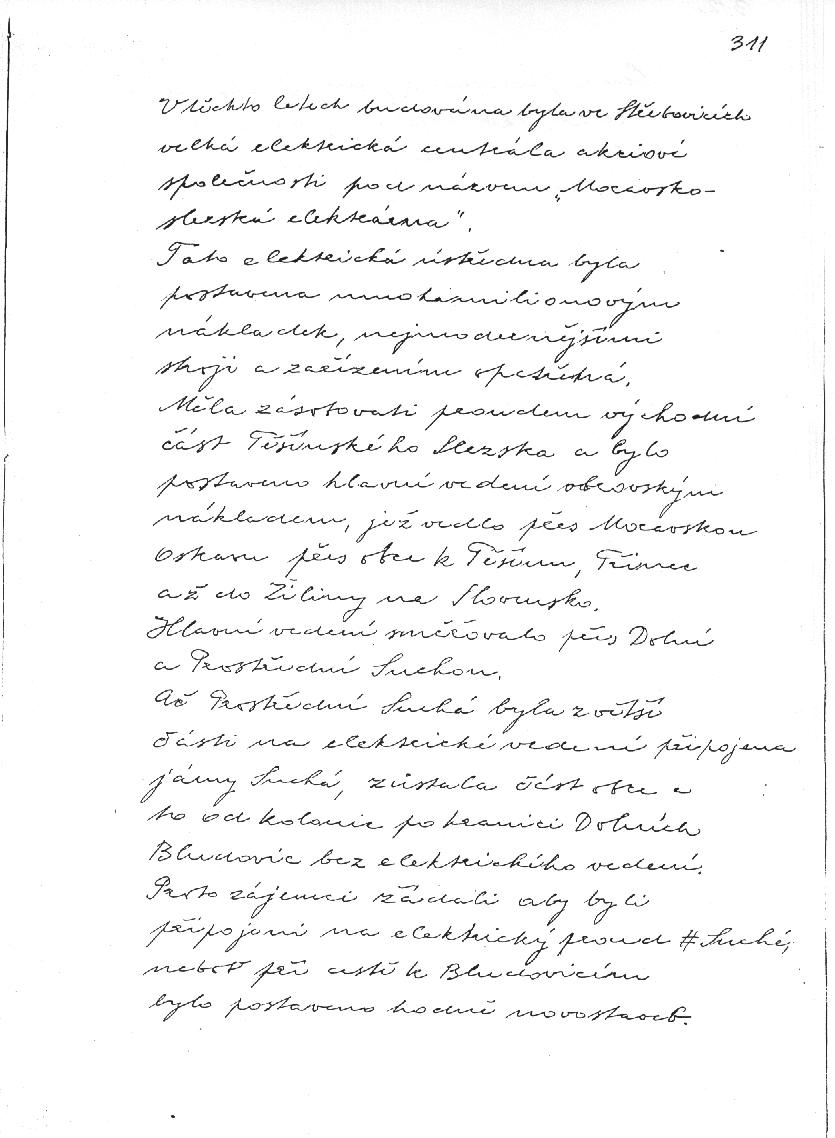 311
V těchto letech budována byla ve Střebovicích
velká elektrická centrála akciové
společnosti pod názvem „Moravsko-
slezská elektrárna".
Tato elektrická ústředna byla
postavena mnohamilionovým
nákladek, nejmodernějšími
stroji a zařízením opatřená.
Měla zásobovati proudem východní
část Těšínského Slezska a bylo
postaveno hlavní vedení obrovským
nákladem, jež vedlo přes Moravskou
Ostravu přes obce k Těšínu, Třinec
až do Žiliny na Slovensko.
Hlavní vedení směřovalo přes Dolní
a Prostřední Suchou.
Ač Prostřední Suchá byla z větší
části na elektrické vedení připojena
jámy Suchá, zůstala část obce a
to od kolonie po hranici Dolních
Bludovic bez elektrického vedení.
Proto zájemci žádali aby byli
připojeni na elektrický proud # Suché,
neboť při cestě k Bludovicím
bylo postaveno hodně novostaveb.